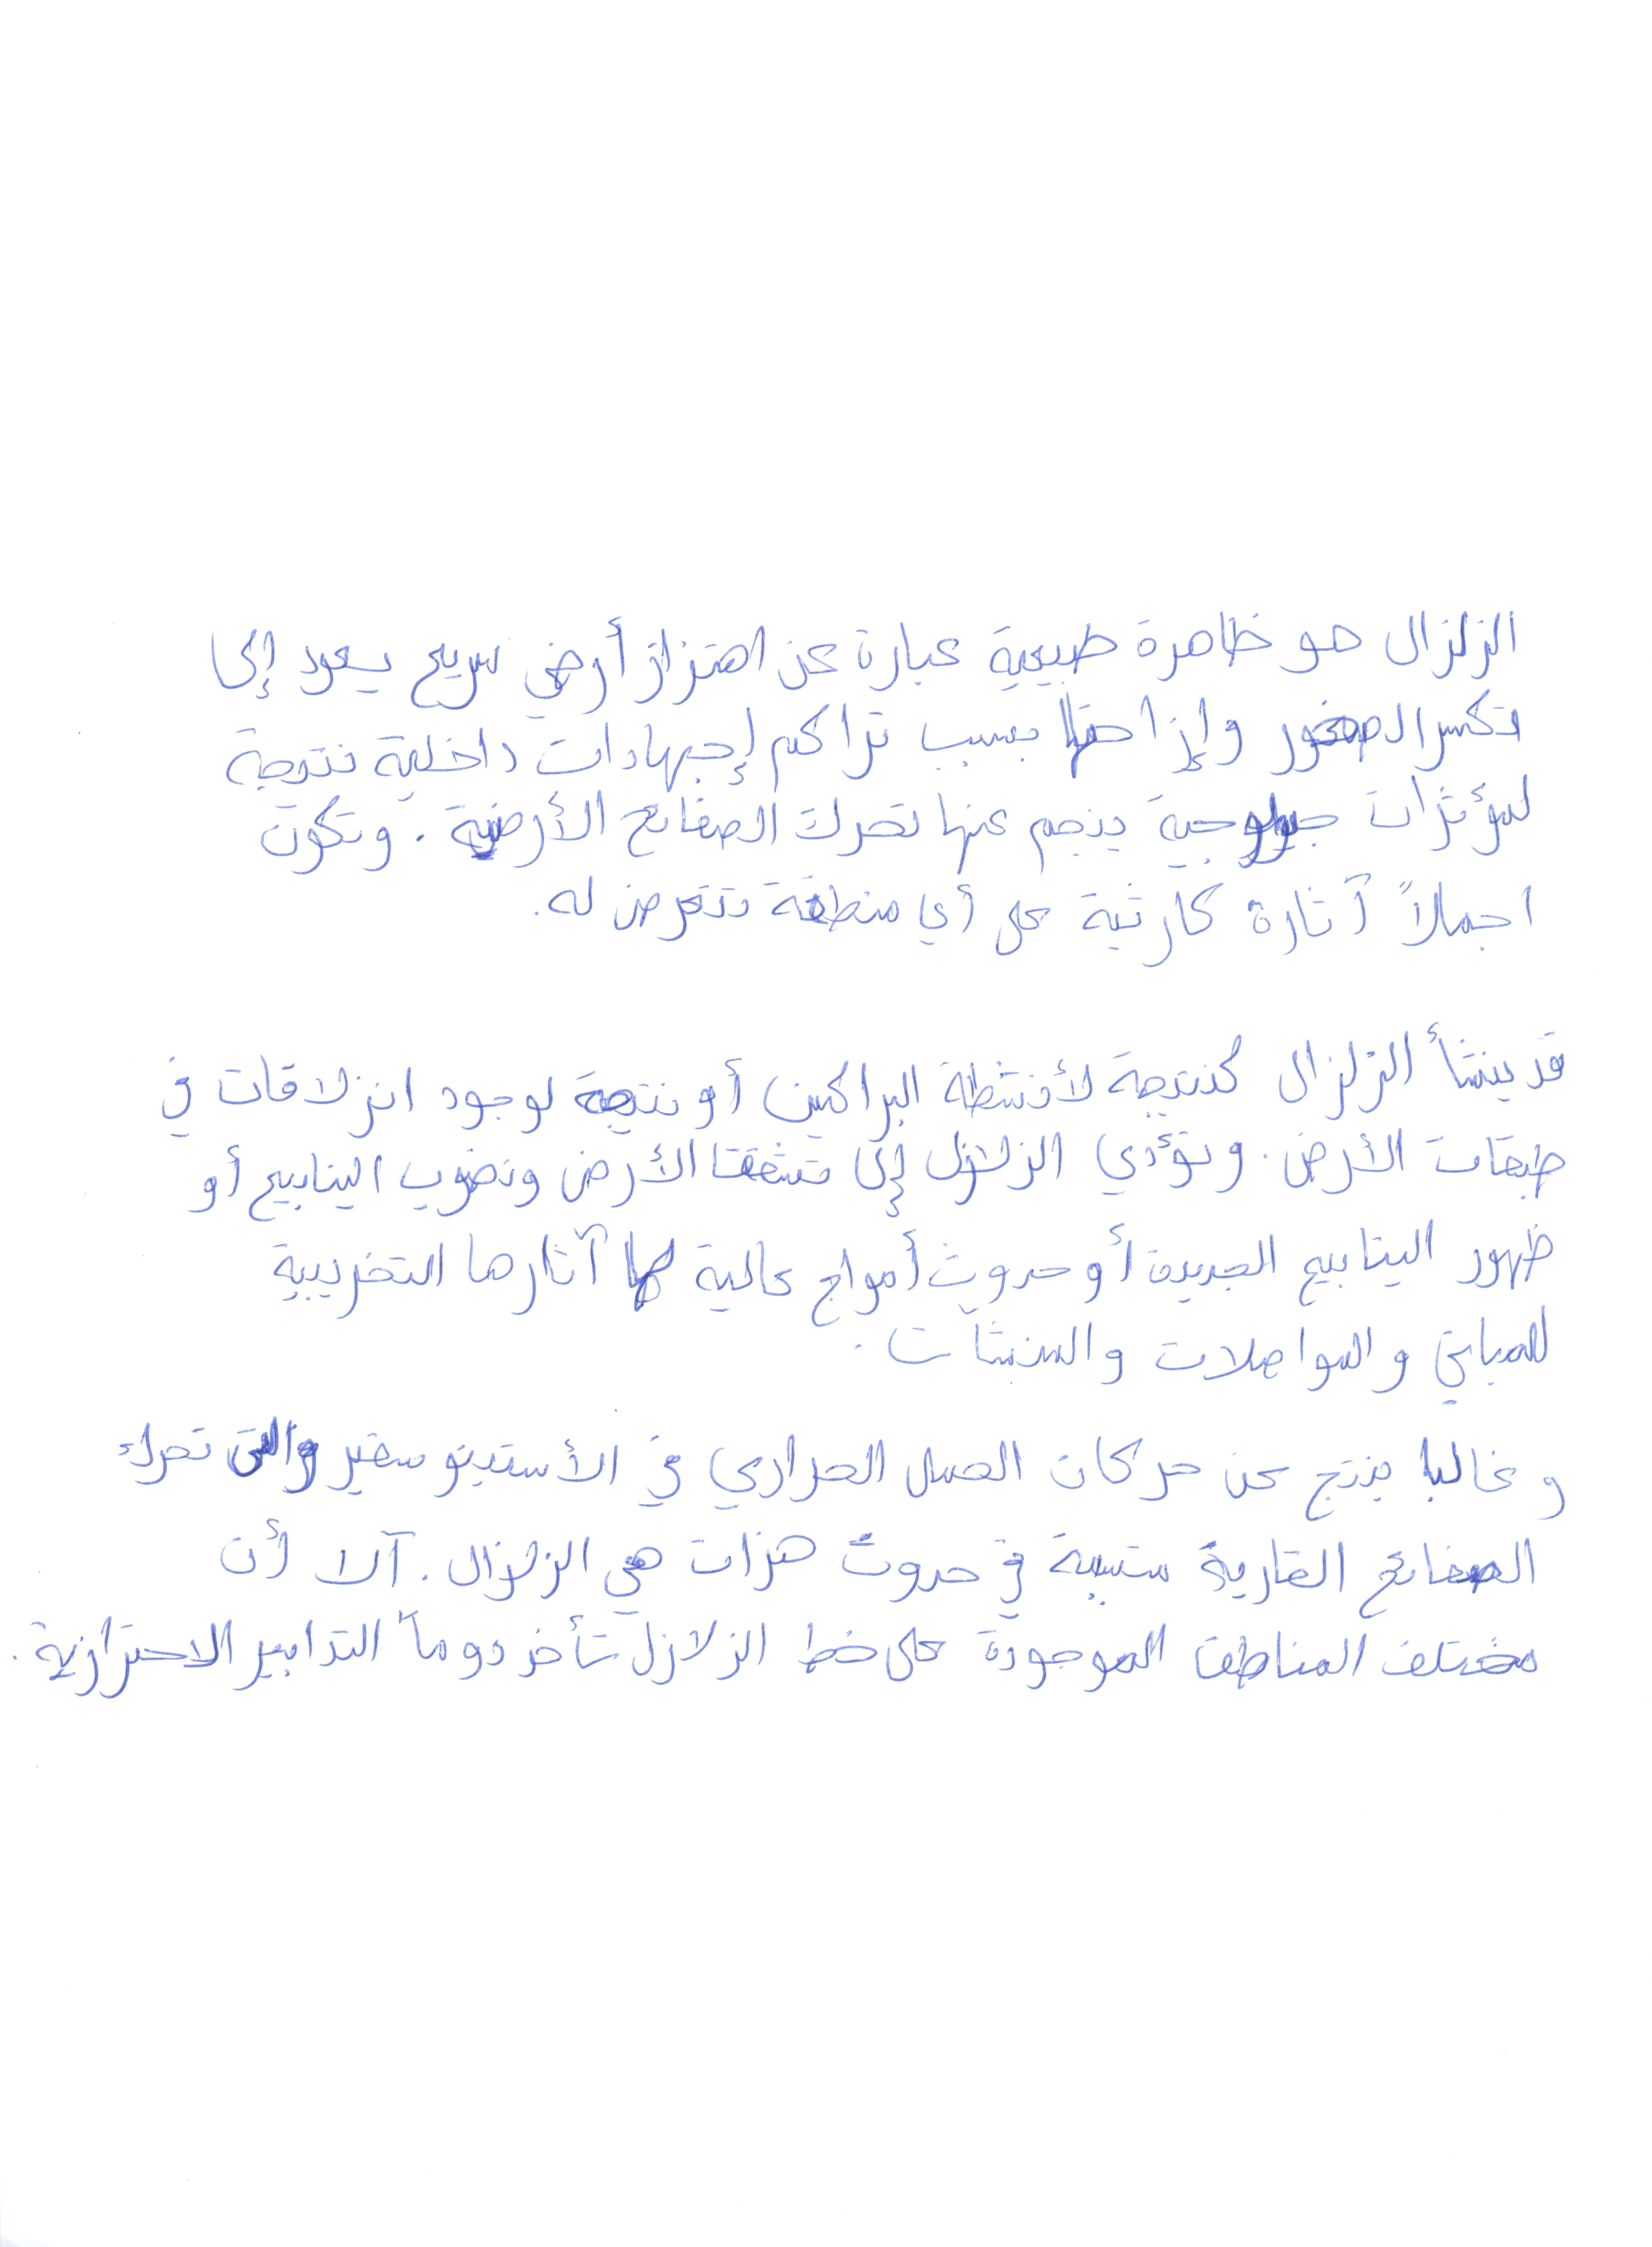 الزلزال هو ظاهرة طبيعية عبارة عن اهتزاز أرضي سريع يعود إلى
تكسر الصخور وإزاحتها بسبب تراكم إجهادات داخلية نتيجة
لمؤثرات جيولوجية ينجم عنها تحرك الصفائح الأرضية. وتكون
اجمالاً آثارة كارثية على أي منطقة تتعرض له.
قد ينشأ الزلزال كنتيجة لأنشطة البراكين أو نتيجة لوجود انزلاقات في
طبقات الأرض. وتؤدي الزلازل إلى تشققا الأرض ونضوب الينابيع أو
ظهور الينابيع الجديدة أو حدوث أمواج عالية لها آثارها التخريبية
للمباني والمواصلات والمنشآت.
وغالبا ينتج عن حركات الحمل الحراري في الأستينوسفير والتي تحرك
الصفائح القارية متسببة في حدوث هزات هي الزلازل. آلا أن
مختلف المناطق الموجودة على خط الزلازل تأخذ دوماً التدابير الاحترازية.